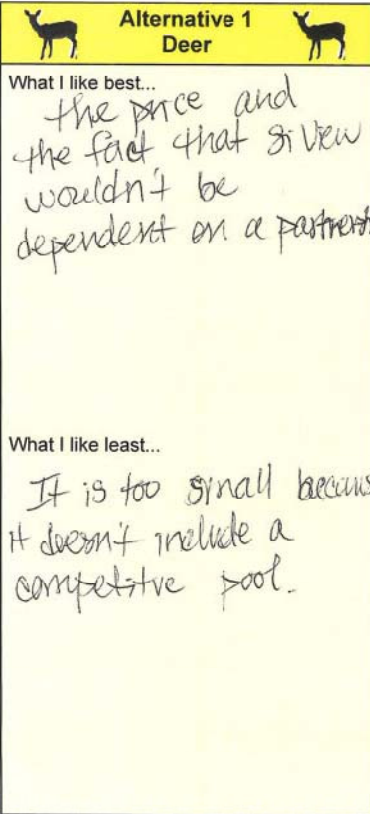 Alternative 1
Deer
What I like best...
the price and
the fact that Si View
wouldn't be
dependent on a
What I like least...
It is too small
it doesn't include a
competitive pool.